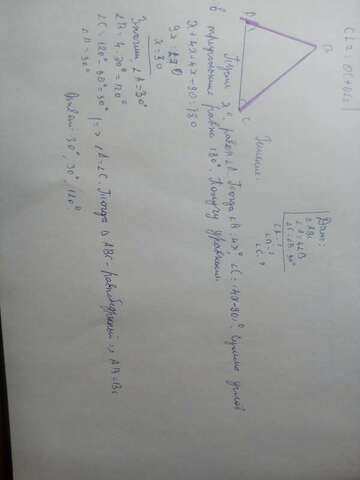 Дано:
△ABC
∠C = ∠B - 90°
∠A - ?
∠B - ?
∠C - ?
B
A
C
Решение:
Пусть x° равен ∠A. Тогда ∠B = 4x°, ∠C = 4x-90°. Сумма углов
в треугольнике равна 180°. Получу уравнение.
x+4x+4x-90=180
9x=270
x=30
Значит ∠A=30°
∠B = 4·30°=120°
∠C = 120°-90°=30° | => ∠A=∠C. Тогда △ABC - равнобедренный => AB=BC
∠A = 30°
Ответ: 30°, 30°, 120°